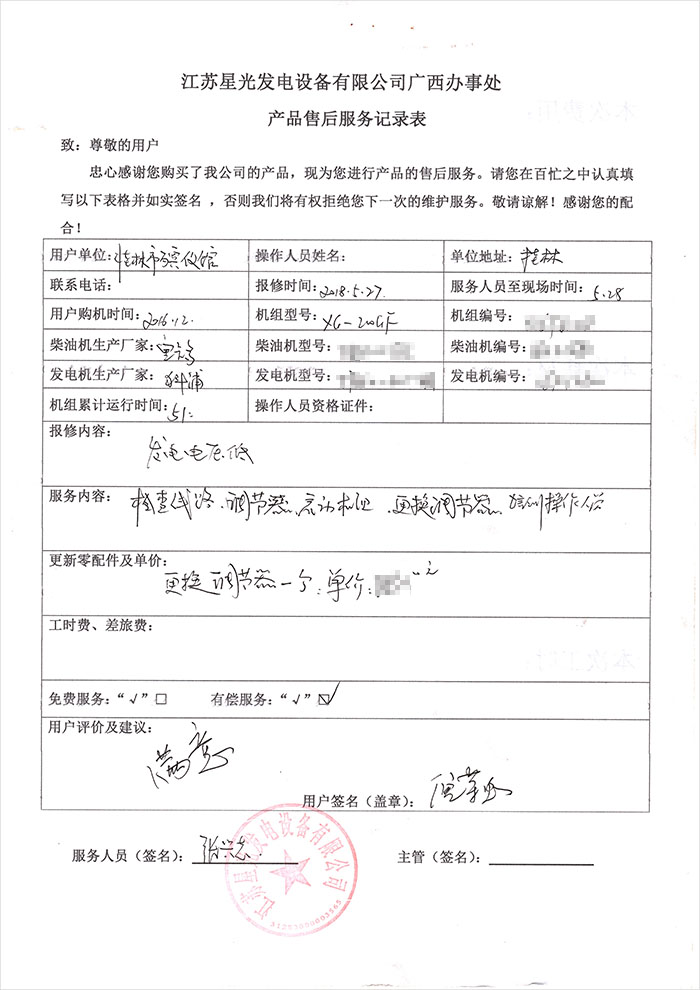 江苏星光发电设备有限公司广西办事处
产品售后服务记录表
致：尊敬的用户
忠心感谢您购买了我公司的产品，现为您进行产品的售后服务。请您在百忙之中认真填
写以下表格并如实签名 ，否则我们将有权拒绝您下一次的维护服务。敬请谅解！感谢您的配
合！
用户单位：桂林市殡仪馆 操作人员姓名： 单位地址：桂林
联系电话： 报修时间：2018.5.27. 服务人员至现场时间：5.28
用户购机时间：2016.12. 机组型号：XG-200GF 机组编号：
柴油机生产厂家： 柴油机型号： 柴油机编号：
发电机生产厂家：科浦 发电机型号： 发电机编号：
机组累计运行时间：51. 操作人员资格证件：
报修内容：
发电电压低
服务内容：检查线路、调节器、启动机组、更换调节器、培训操作人员
更新零配件及单价：
更换调节器一个：单价： 元
工时费、差旅费：
免费服务：“√”□ 有偿服务：“√”☑
用户评价及建议：
满意
用户签名（盖章）：
服务人员（签名）：张兴志 主管（签名）：
江苏星光发电设备有限公司